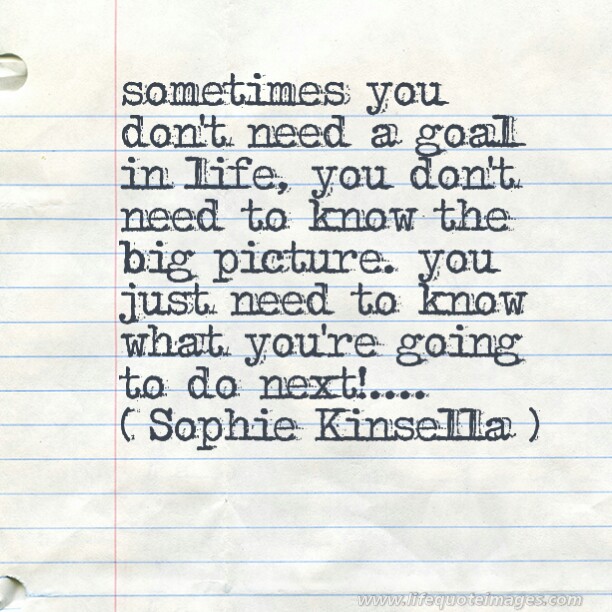 sometimes you
don't need a goal
in life, you don't
need to know the
big picture. you
just need to know
what you're going
to do next!....
( Sophie Kinsella )
www.lifequoteimages.com